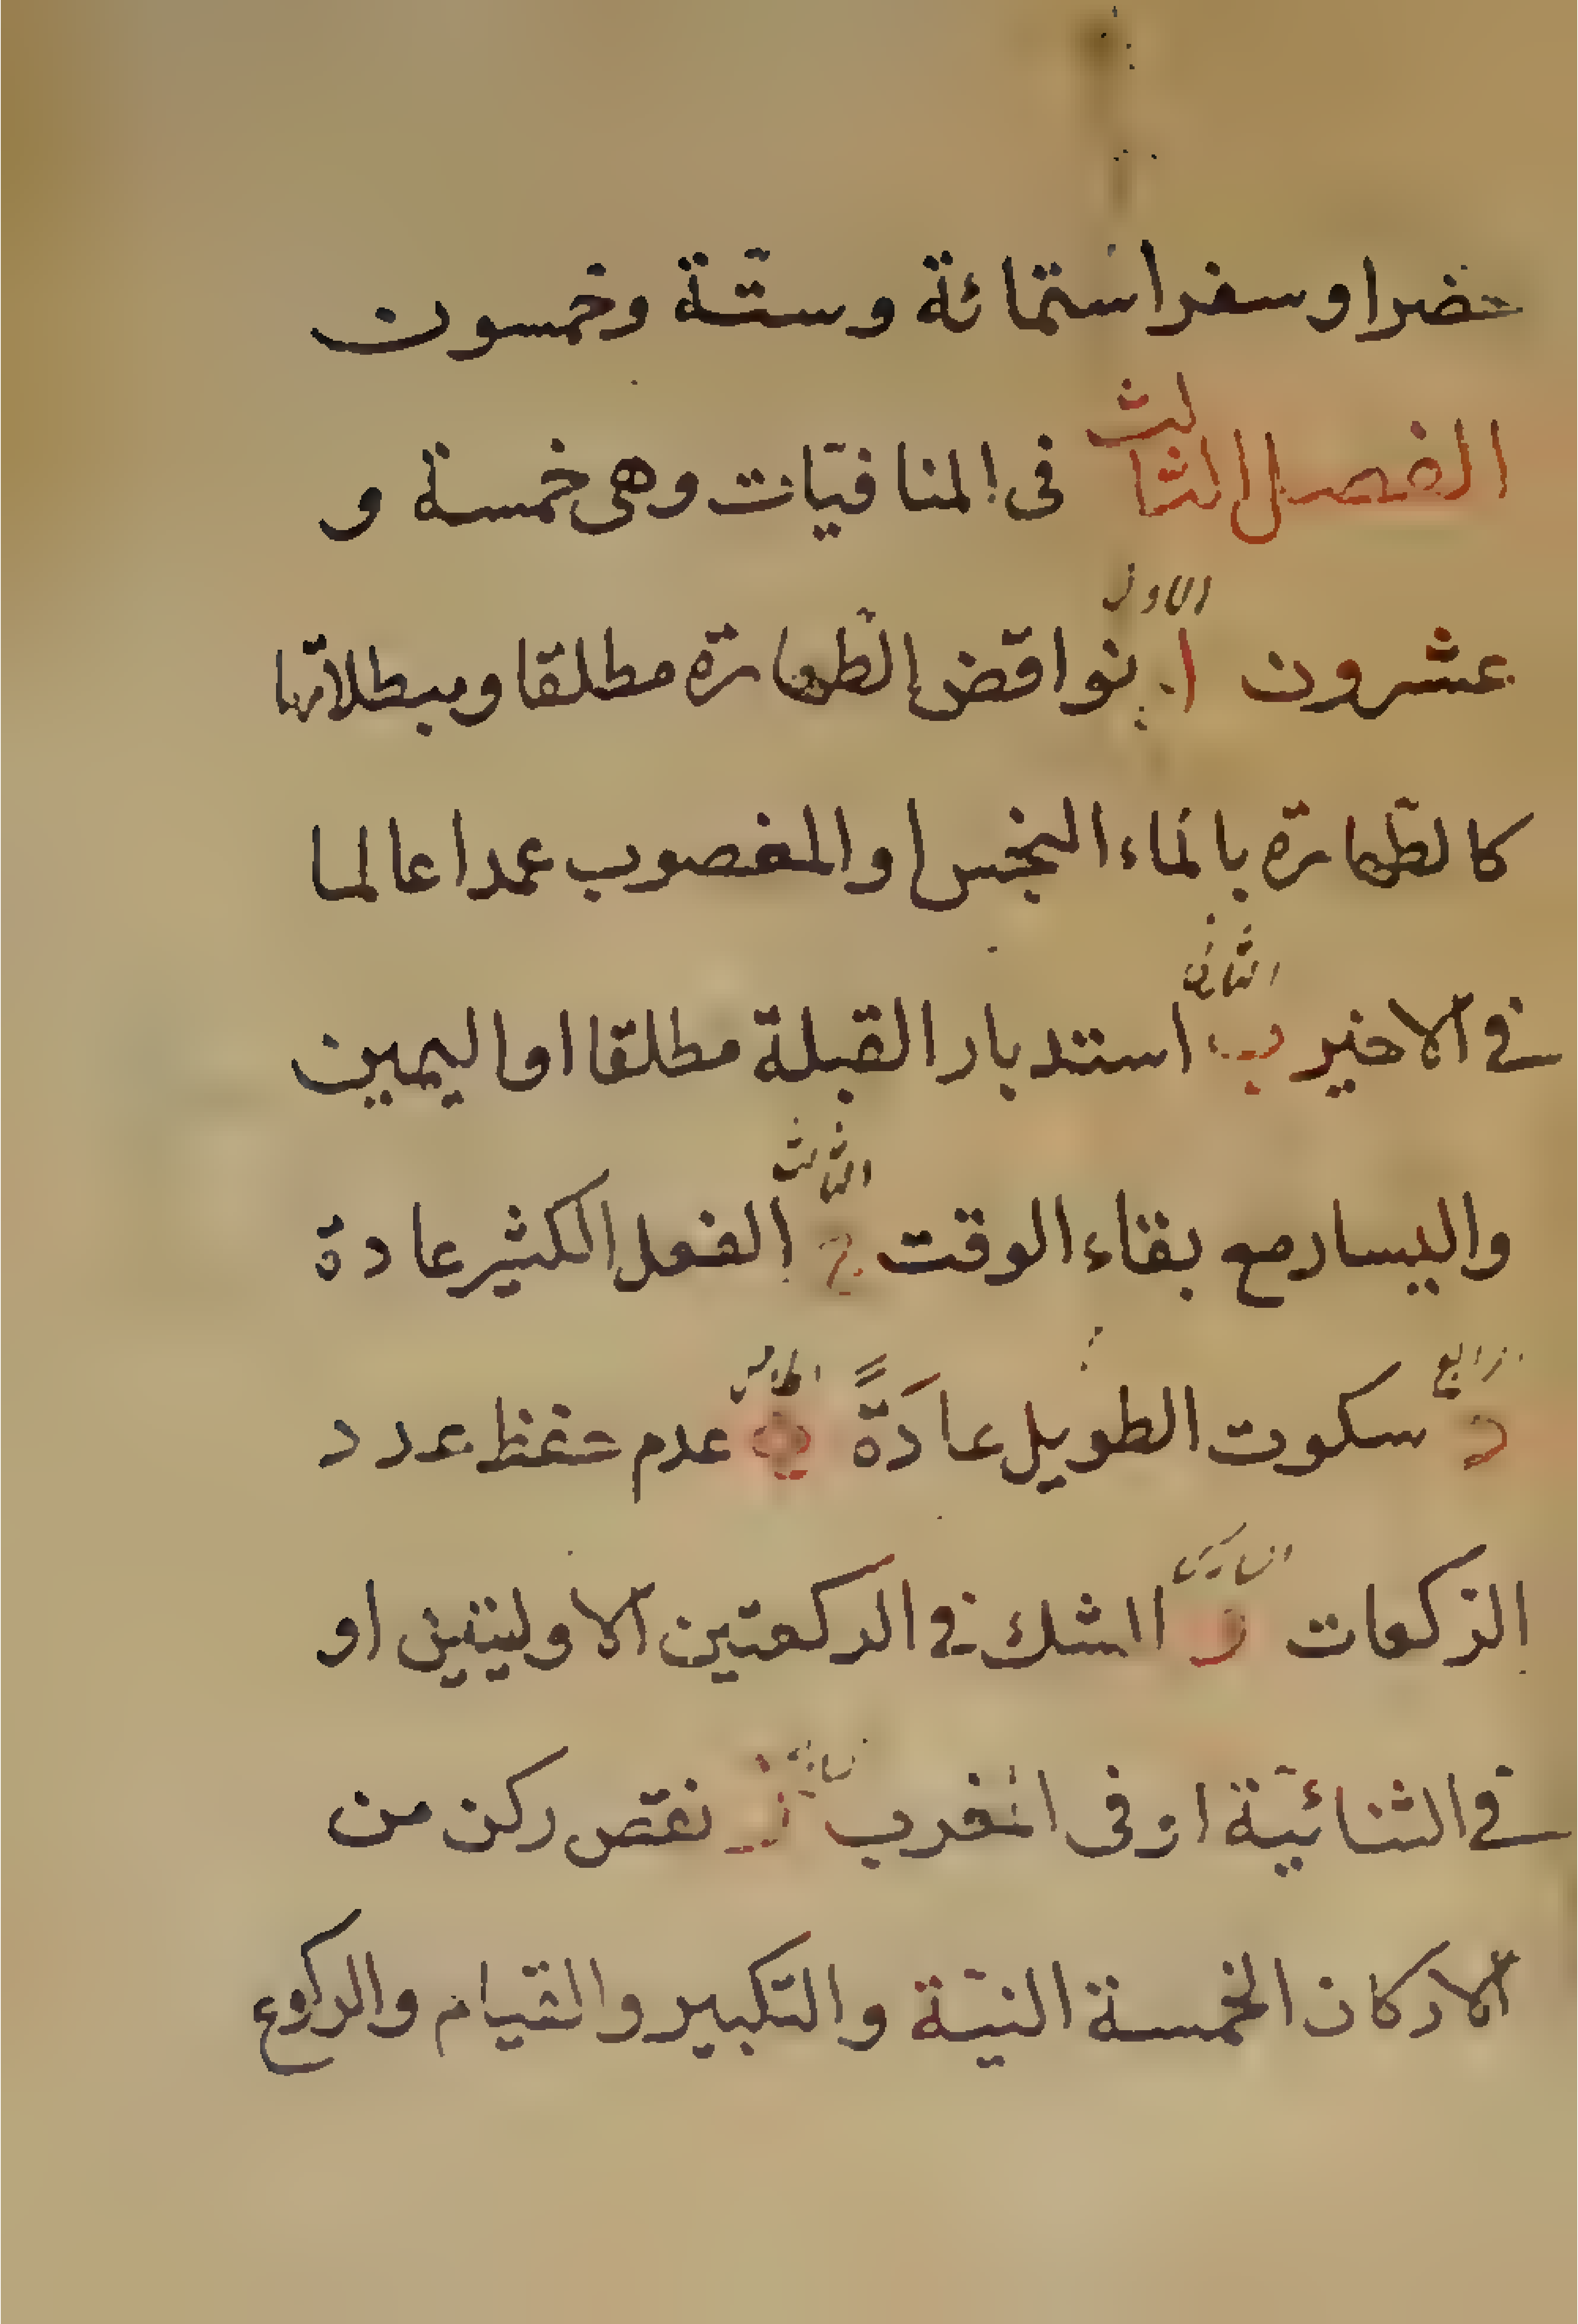 حضرا وسفرا ستمائة وستّة وخمسون
الفصل الثالث فى المنافيات وهى خمسة و
الاول
عشرون ا نواقض الطهارة مطلقا ومبطلاتها
كالطّهارة بالماء النجس والمغصوب عمدا عالما
الثانى
فى الاخير ب استدبار القبلة مطلقا او اليمين
الثالث
واليسار مع بقاء الوقت ج الفعل الكثير عادة
الرابع الخامس
د سكوت الطويل عادَةً ه عدم حفظ عدد
السادس
الركعات و الشك فى الركعتين الاوليتين او
فى الثنائيّة او فى المغرب ز نقص ركن من
الاركان الخمسة النيّة والتكبير والقيام والركوع